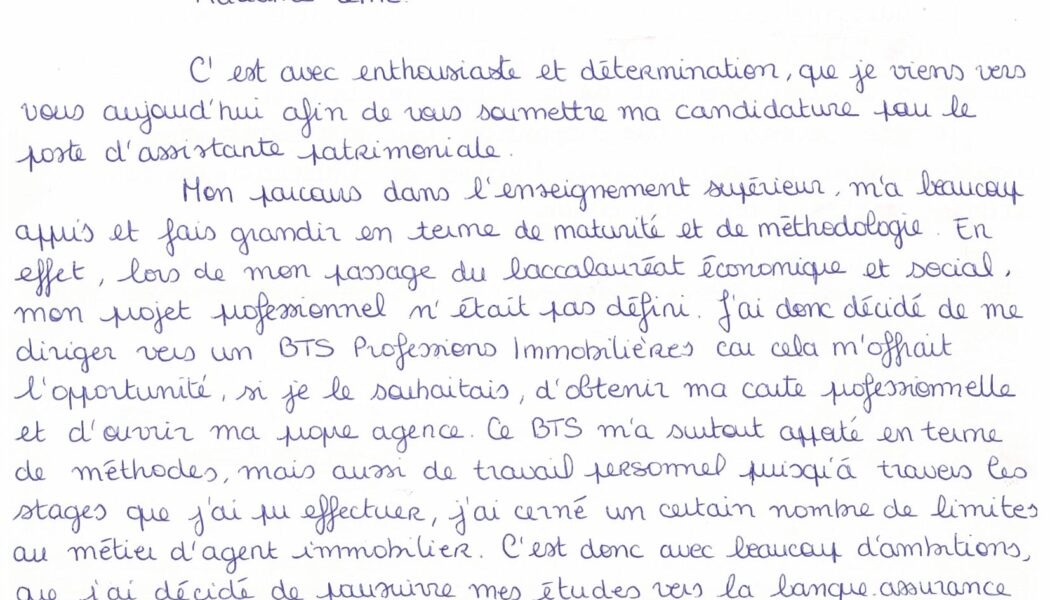 C'est avec enthousiaste et détermination, que je viens vers
vous aujourd'hui afin de vous soumettre ma candidature pour le
poste d'assistante patrimoniale.
Mon parcours dans l'enseignement supérieur, m'a beaucoup
appris et fais grandir en terme de maturité et de méthodologie. En
effet, lors de mon passage du baccalauréat économique et social,
mon projet professionnel n'était pas défini. J'ai donc décidé de me
diriger vers un BTS Professions Immobilières car cela m'offrait
l'opportunité, si je le souhaitais, d'obtenir ma carte professionnelle
et d'ouvrir ma propre agence. Ce BTS m'a surtout apporté en terme
de méthodes, mais aussi de travail personnel puisqu'à travers les
stages que j'ai pu effectuer, j'ai cerné un certain nombre de limites
au métier d'agent immobilier. C'est donc avec beaucoup d'ambitions,
que j'ai décidé de poursuivre mes études vers la banque.assurance